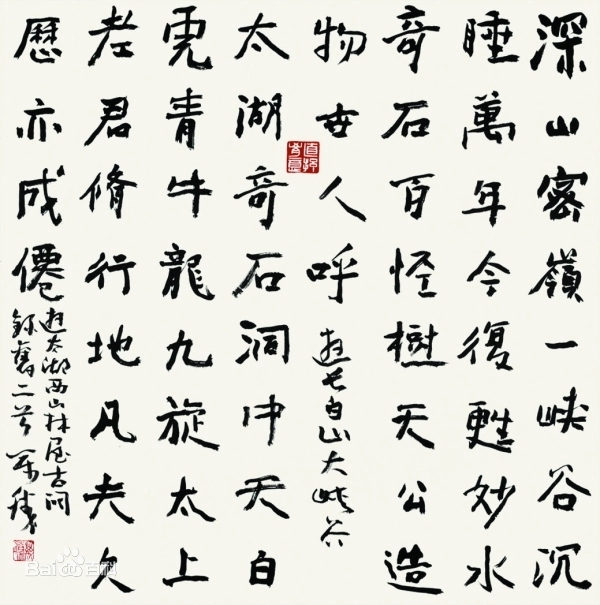 深山密嶺一峡谷沉
睡萬年今復甦妙水
奇石百怪樹天公造
物世人呼 遊長白山大峡谷
太湖奇石洞中天白
虎青牛龍九旋太上
老君脩行地凡夫久
歷亦成僊
遊太湖西山林屋古洞
録舊二首
Bai百科